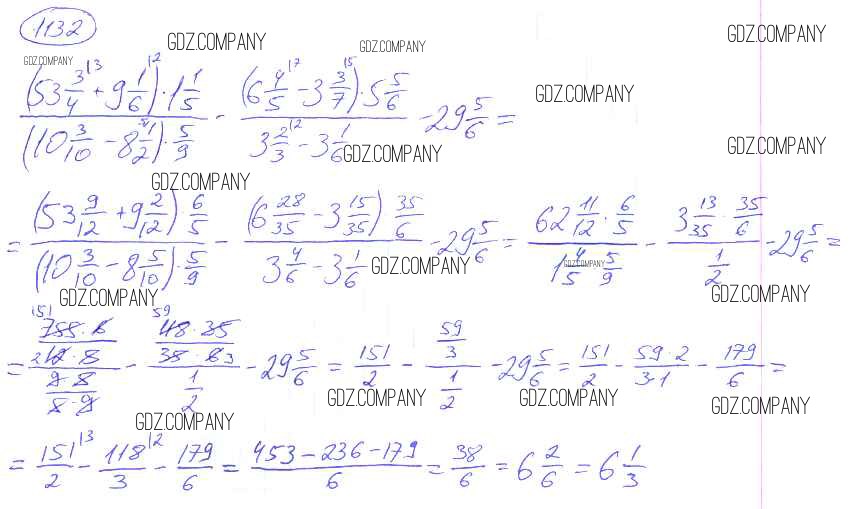 1132
GDZ.COMPANY GDZ.COMPANY GDZ.COMPANY GDZ.COMPANY
((53 3/4 + 9 1/6) · 1 1/5) / ((10 3/10 − 8 1/2) · 5/9) − ((6 4/5 − 3 3/7) · 5 5/6) / (3 2/3 − 3 1/6) − 29 5/6 =
GDZ.COMPANY GDZ.COMPANY GDZ.COMPANY GDZ.COMPANY
= ((53 9/12 + 9 2/12) · 6/5) / ((10 3/10 − 8 5/10) · 5/9) − ((6 28/35 − 3 15/35) · 35/6) / (3 4/6 − 3 1/6) − 29 5/6 = (62 11/12 · 6/5) / (1 4/5 · 5/9) − (3 13/35 · 35/6) / (1/2) − 29 5/6 =
GDZ.COMPANY GDZ.COMPANY GDZ.COMPANY GDZ.COMPANY
− 29 5/6 = 151/2 − (59/3) / (1/2) − 29 5/6 = 151/2 − (59 · 2)/(3 · 1) − 179/6 =
GDZ.COMPANY GDZ.COMPANY GDZ.COMPANY GDZ.COMPANY
= 151/2 − 118/3 − 179/6 = (453 − 236 − 179)/6 = 38/6 = 6 2/6 = 6 1/3